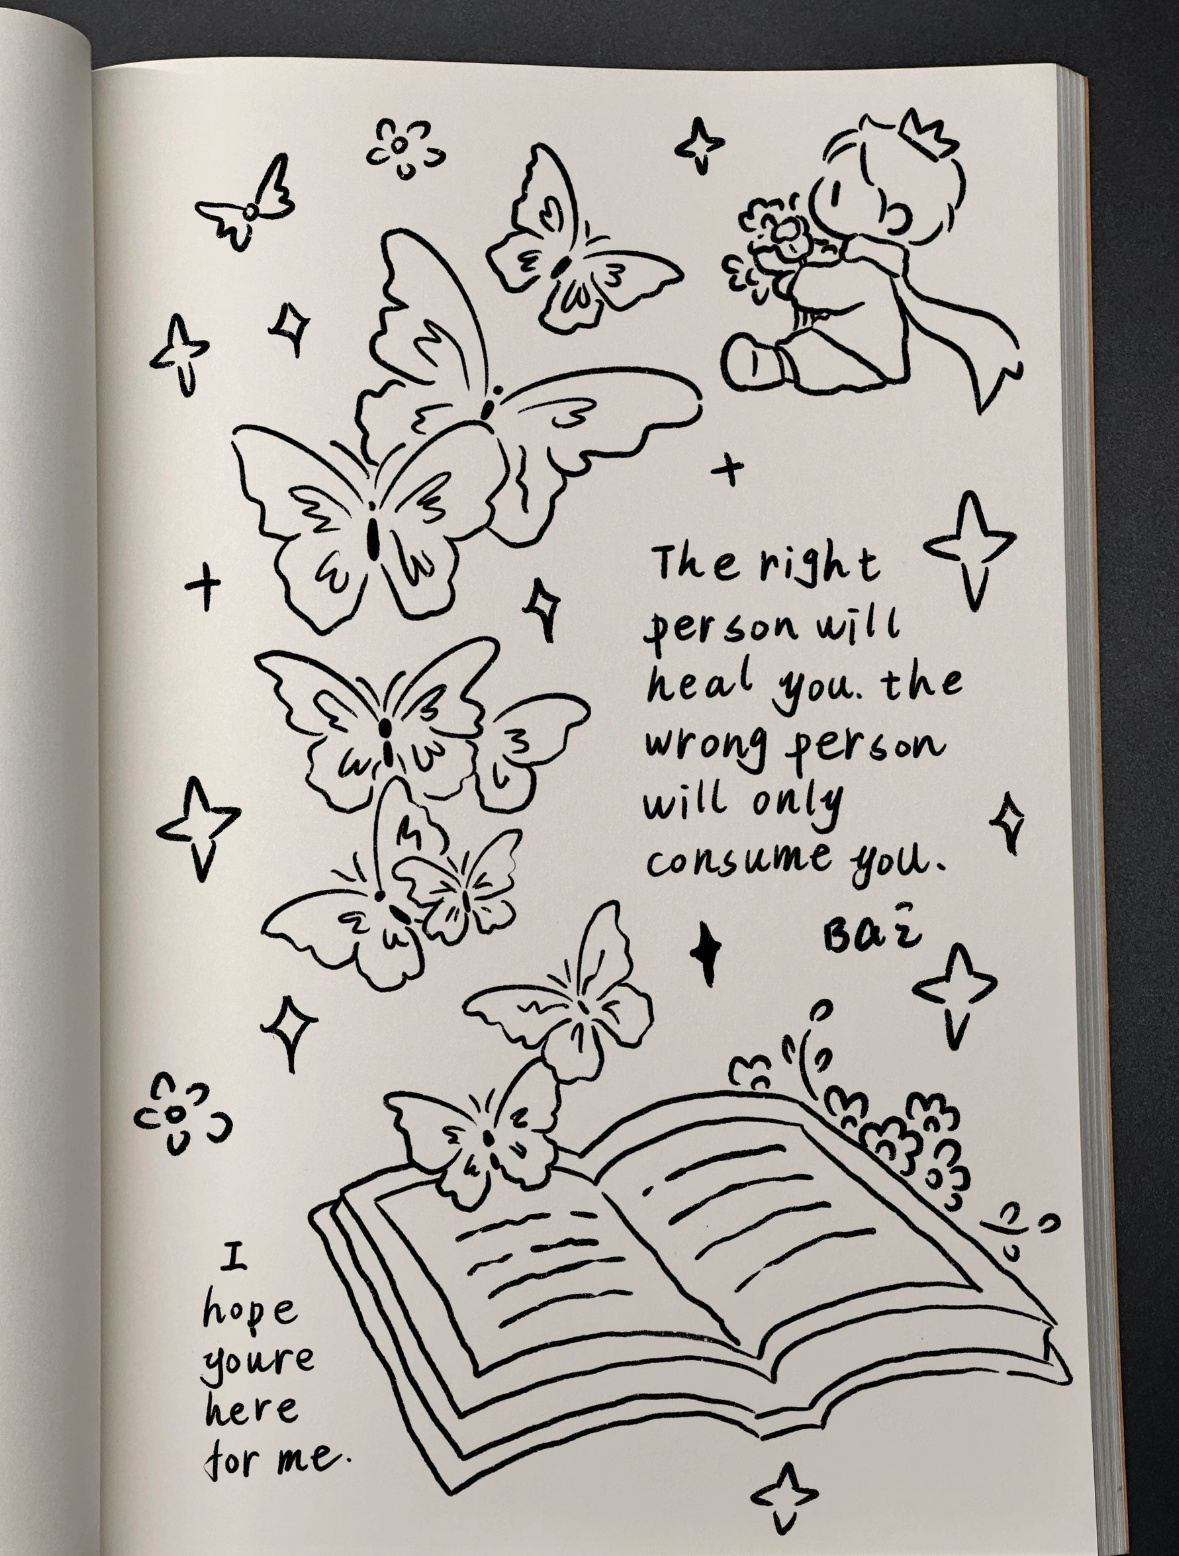 The right
person will
heal you. the
wrong person
will only
consume you.
I
hope
youre
here
for me.